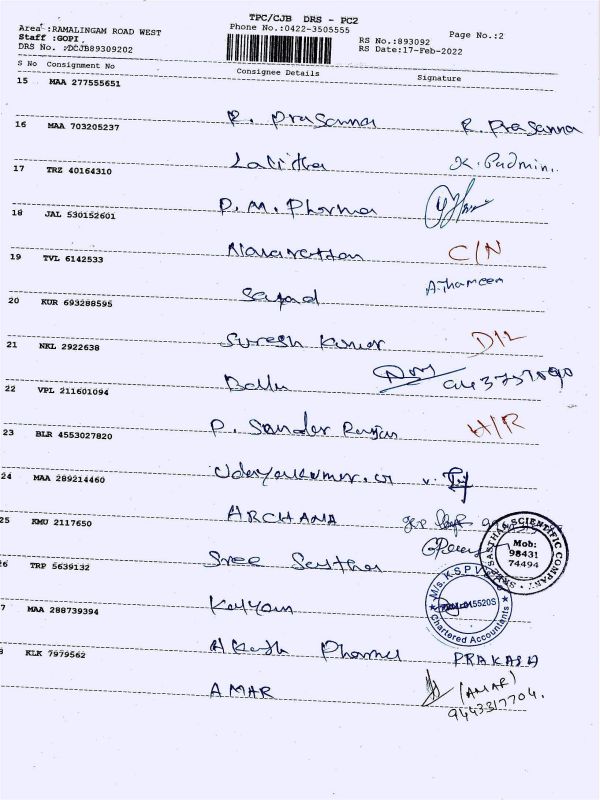 TPC/CJB DRS - PC2
Area :RAMALINGAM ROAD WEST
Phone No.:0422-3505555
Page No.:2
Staff :GOPI
RS No.:893092
DRS No. :DCJB89309202
RS Date:17-Feb-2022
S No Consignment No Consignee Details Signature
15 MAA 277555651
R. Prasanna R. Prasanna
16 MAA 703205237
Lalitha K. Padmin..
17 TRZ 40164310
P. M. Pharma
18 JAL 530152601
Navarattan C/N
19 TVL 6142533
Sayad A.Thameen
20 KUR 693288595
Suresh Kumar D/L
21 NKL 2922638
Ballu
22 VPL 211601094
P. Sander H/R
23 BLR 4553027820
Udayakumar. v.
24 MAA 289214460
ARCHANA
25 KMU 2117650
Sree Sastha
SRI SASTHA SCIENTIFIC COMPANY
Mob:
98431
74494
26 TRP 5639132
Kalyan
M/s. K.S.P.V
Chartered Accountants
7 MAA 288739394
Akash Pharma PRAKASH
8 KLK 7979562
AMAR (AMAR)
9443317704.